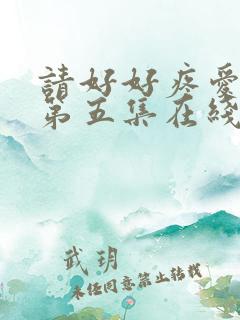 請好好疼愛
第五集在綫
武玥
未经同意禁止转载